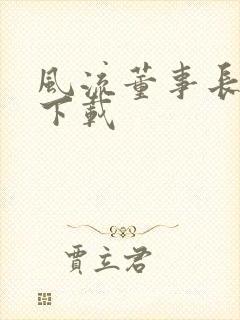 風流董事長
下載
賈立君